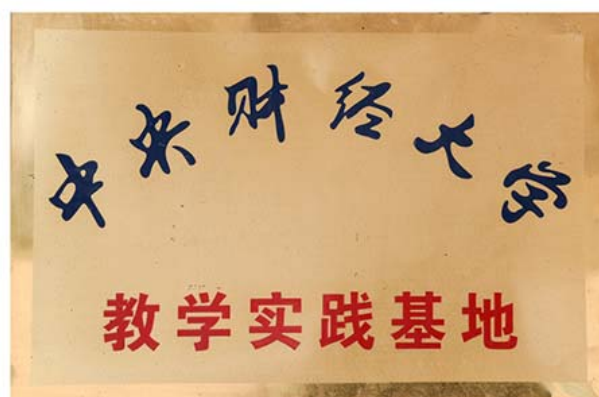 中央财经大学
教学实践基地